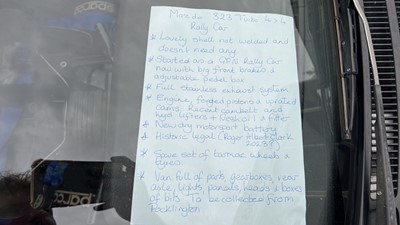 Mazda 323 Turbo 4x4
Rally Car
* Lovely shell not welded and
doesn't need any
* Started as a GpN Rally Car
now with big front brakes &
adjustable pedal box
* Full stainless exhaust system
* Engine, forged pistons & uprated
cams. Recent cambelt and
hyd lifters + fresh oil & filter
* New dry motorsport battery
* Historic legal (Roger Albert Clark
2023)
* Spare set of tarmac wheels &
tyres
* Van full of parts, gearboxes, rear
axle, lights, panels, heaps & boxes
of bits. To be collected from
Pocklington